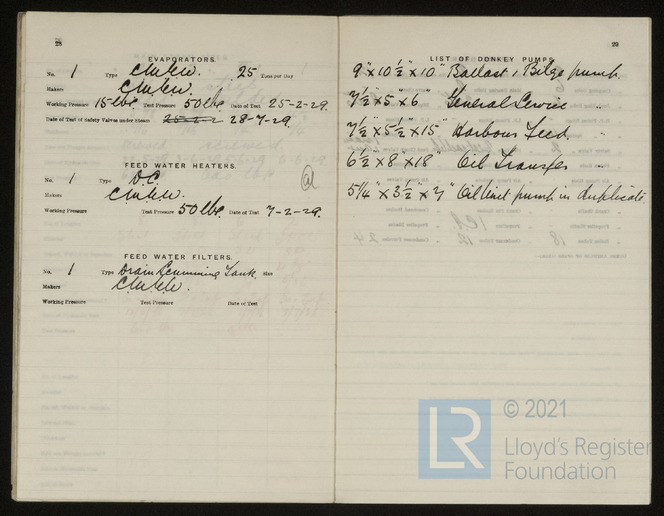 28
EVAPORATORS.
No. 1 Type C.M.E.W. 25 Tons per Day
Makers C.M.E.W.
Working Pressure 15 lbs. Test Pressure 50 lbs. Date of Test 25-2-29.
Date of Test of Safety Valves under Steam 28-7-29.
FEED WATER HEATERS.
No. 1 Type D.C.
Makers C.M.E.W.
Working Pressure Test Pressure 50 lbs. Date of Test 7-2-29.
FEED WATER FILTERS.
No. 1 Type Drain Tank. Size
Makers C.M.E.W.
Working Pressure Test Pressure Date of Test
29
LIST OF DONKEY PUMPS.
9" x 10½" x 10" Ballast & Bilge pump.
7½ x 5 x 6" General Service "
7½ x 5½ x 15" Harbour Feed "
6½ x 8 x 18" Oil Transfer "
5¼" x 3½ x 7" Oil Unit pump in duplicate.
LR © 2021
Lloyd's Register
Foundation